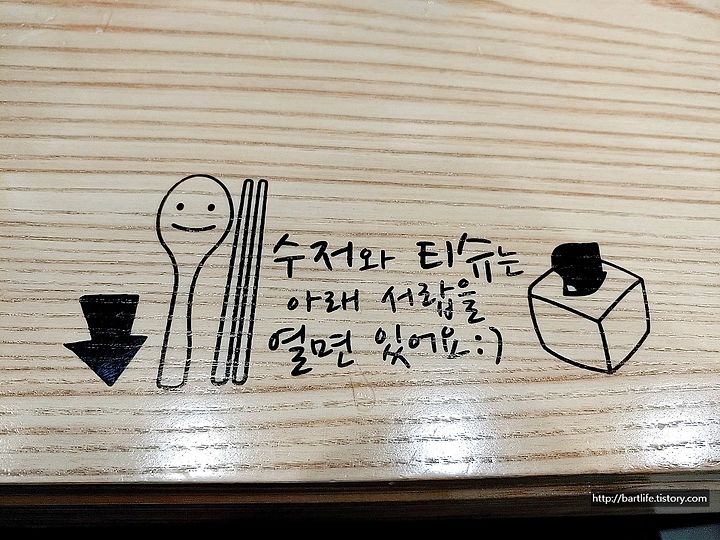 수저와 티슈는
아래 서랍을
열면 있어요:)
http://bartlife.tistory.com